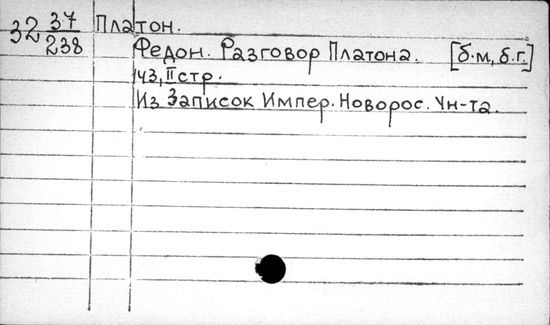 32 37/238 Платон.
Федон. Разговор Платона. [б.м, б.г.]
143, II стр.
Из Записок Импер. Новорос. Ун-та.